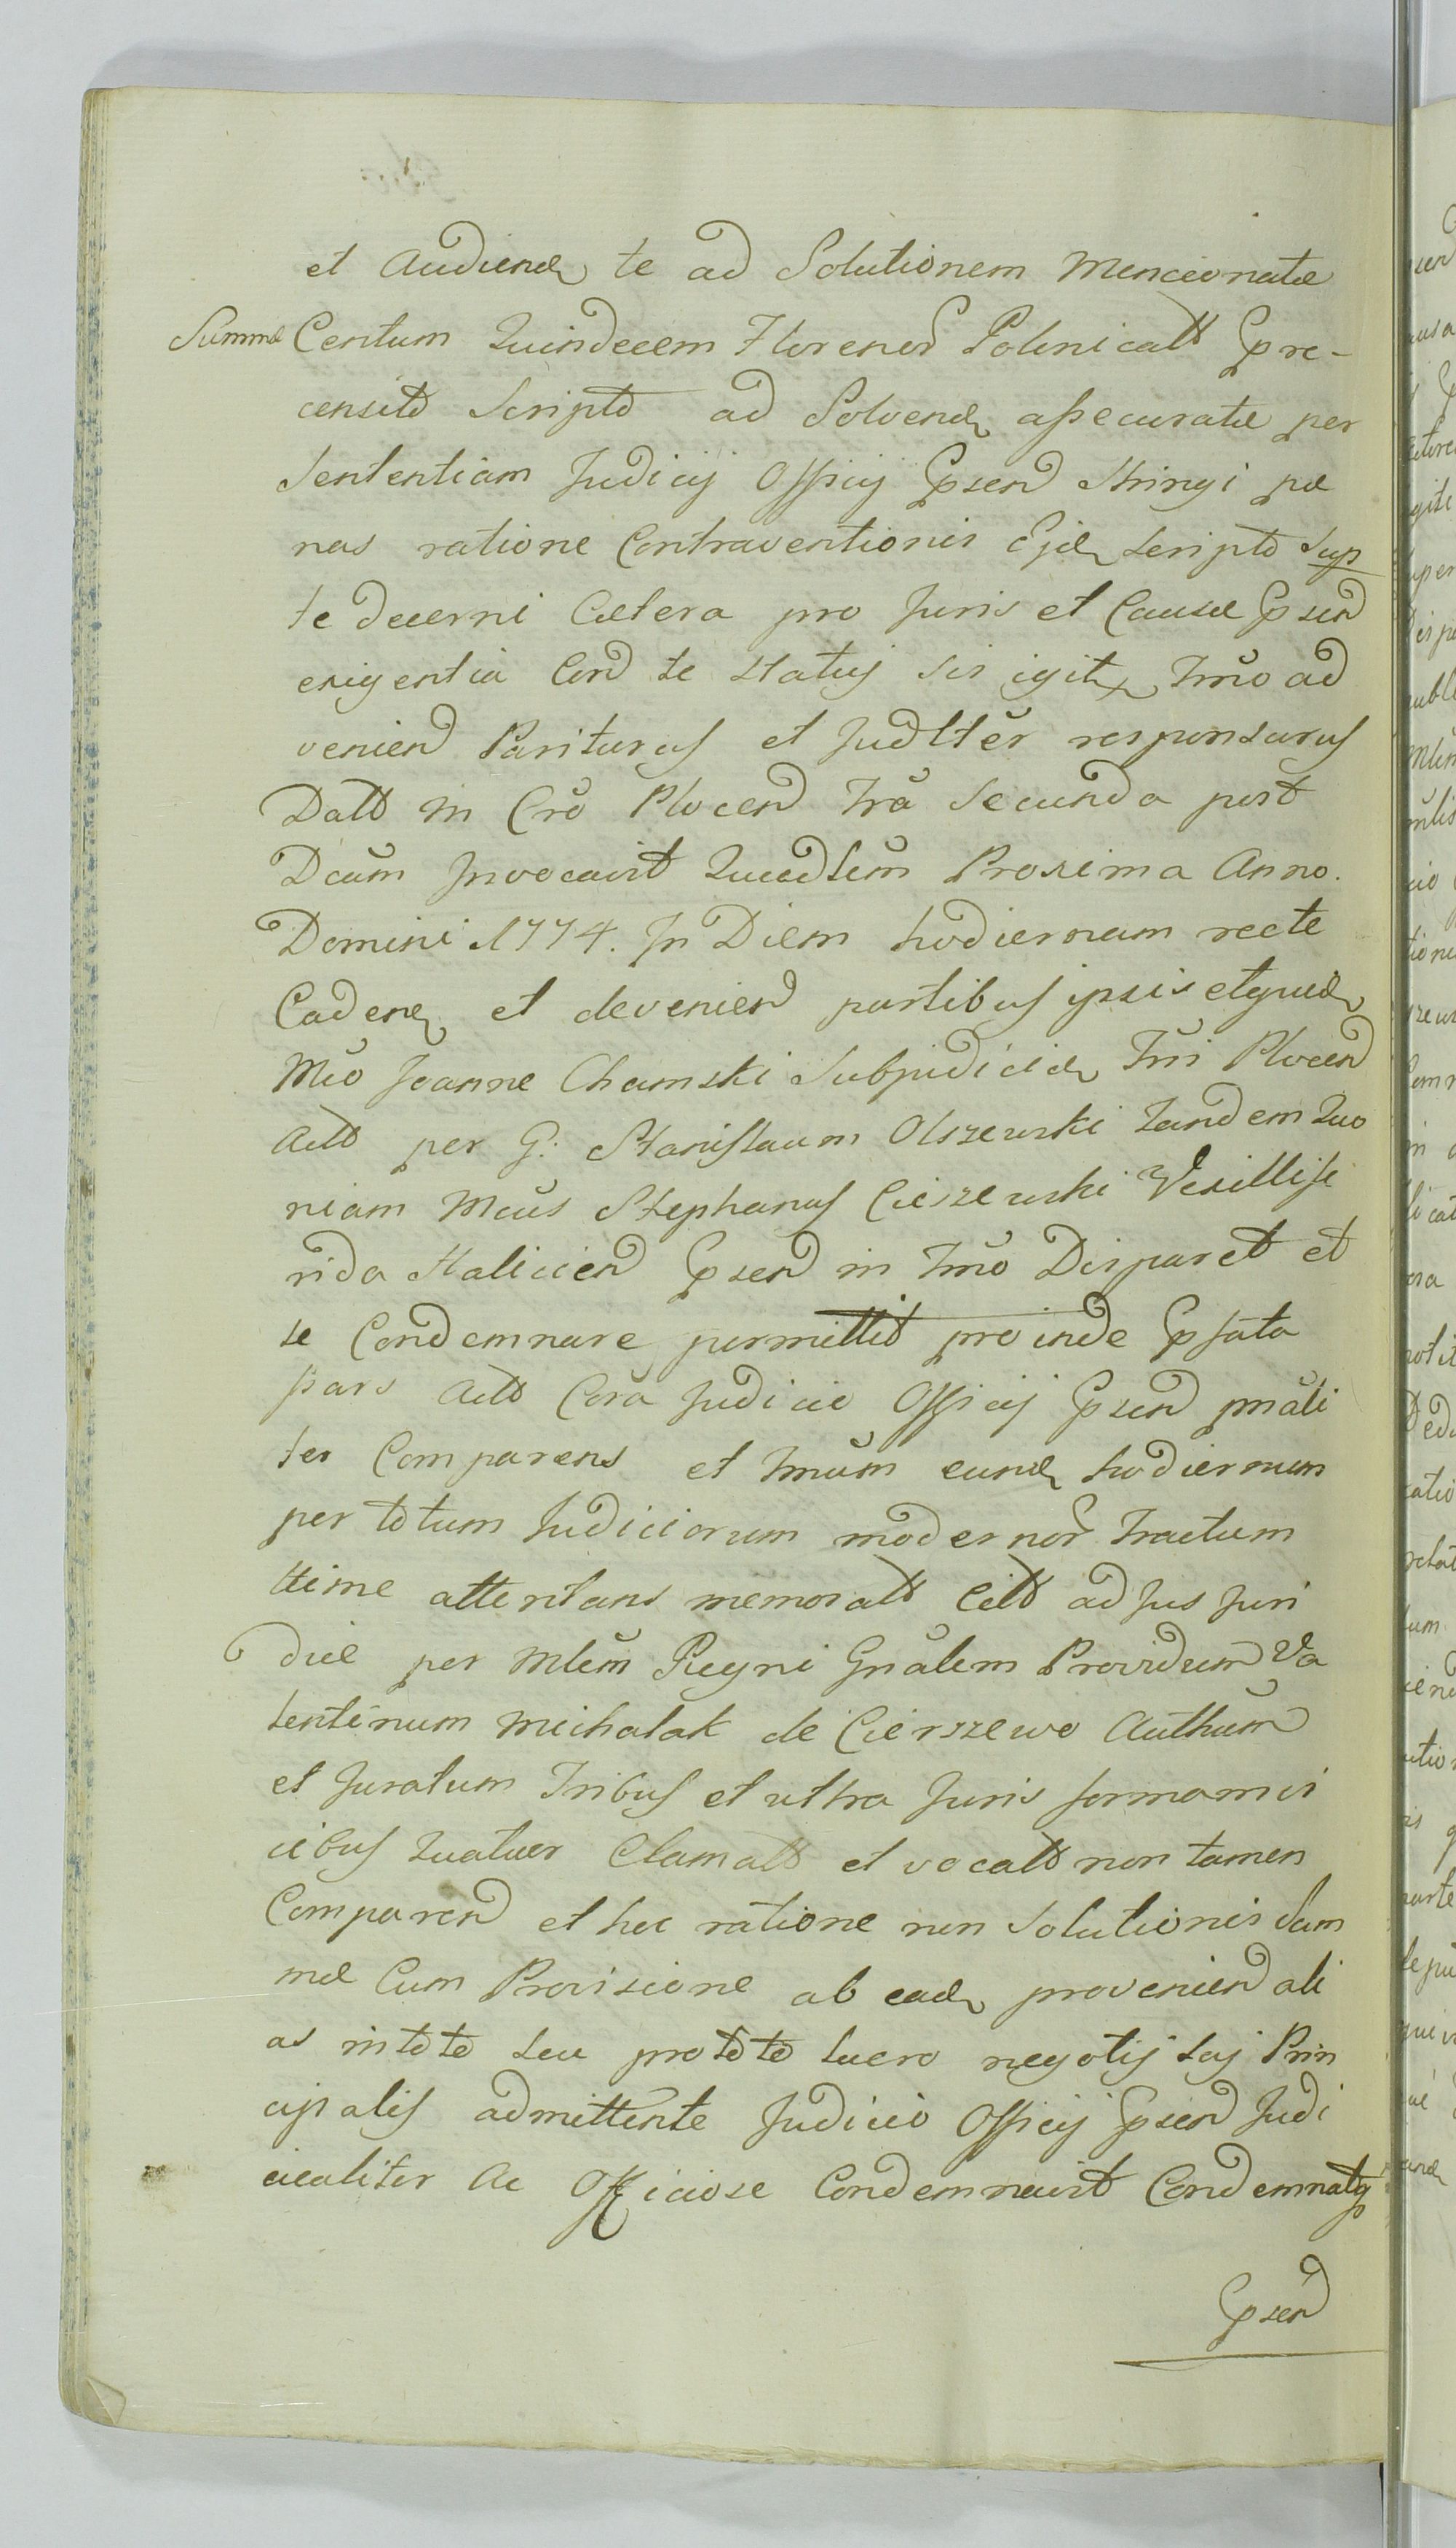 et Audiend te ad Solutionem Mencionatæ
Summæ Centum Quindecem Florenor Polonicalt pre-
censito Scripto ad Solvend assecuratæ per
Sententiam Judicij Officij præsen Stringi pæ
nas ratione Contraventionis Ejd Scripto sup
te decerni Cætera pro Juris et Causæ præsen
exigentia Con te Statuj Sis igitr Tmŏ ad
venien Pariturus et Judltĕr responsurus
Datt in Crŏ Plocen Fră Secunda post
Dcăm Invocavit Quadsĕm Proxima Anno.
Domini 1774. In Diem hodiernam recte
Caden et devenien partibus ipsis etquid
Mcŏ Joanne Chamski Subjudicid Tŭi Plocen
Actt per G: Stanislaum Olszewski tandem Quo
niam Mcŭs Stephanus Cieszewski Vexillife
rida Halicien præsen in Tmŏ Disparet et
se Condemnare permittit proinde præfata
pars Actt Coră Judicio Officij præsen pnăli
ter Comparens et tmŭm eund hodiernum
per totum Judiciorum modernor Tractum
ttime attentans memoratt Citt ad Jus Juri
dice per Mlĕm Regni Gnălem Providum Va
lentinum Michalak de Cierszewo Authŭm
et Juratum Tribus et ultra Juris formam vi
cibus Quatuor Clamatt et vocatt non tamen
Comparen et hoc ratione non Solutionis Sum
mæ Cum Provisione ab ead provenien ali
as in toto seu pro toto lucro negotij sui Prin
cipalis admittente Judicio Officij præsen Judi
cialiter Ac Officiose Condemnavit Condemnatq
præsen